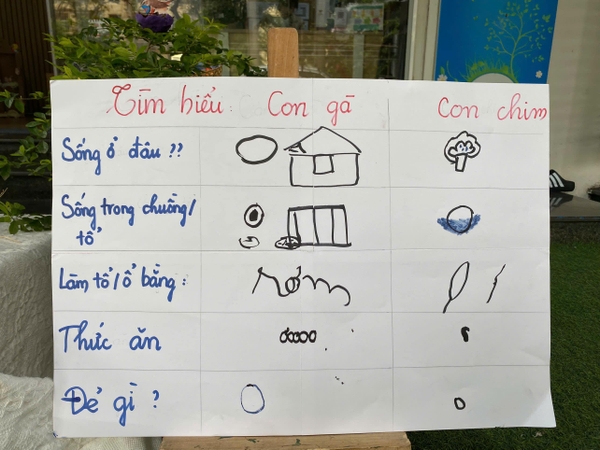 Tìm hiểu: Con gà Con chim
Sống ở đâu ??
Sống trong chuồng/
tổ
Làm tổ/ổ bằng: rơm
Thức ăn
Đẻ gì ?